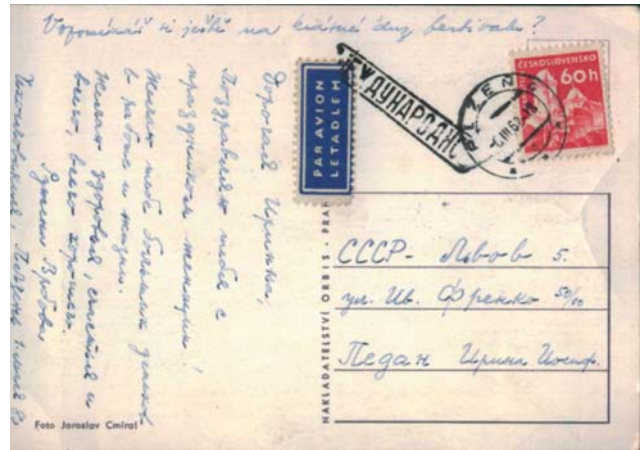 Vzpomínáš si ještě na krásné dny festivalu?
Дорогая Иринка,
Поздравляю тебя с
праздником женщин!
Желаю тебе больших успехов
в работе и жизни.
Желаю здоровья, счастья и
всего, всего хорошего.
Ружена
Чехословакия, Пльзень
Foto Jaroslav Cmíral
PAR AVION
LETADLEM
МЕЖДУНАРОДНОЕ
ČESKOSLOVENSKO
60h
PLZEŇ
NAKLADATELSTVÍ ORBIS - PRAHA
СССР - Львов 5.
ул. Ив. Франко 50/
Педан Ирина Иосиф.